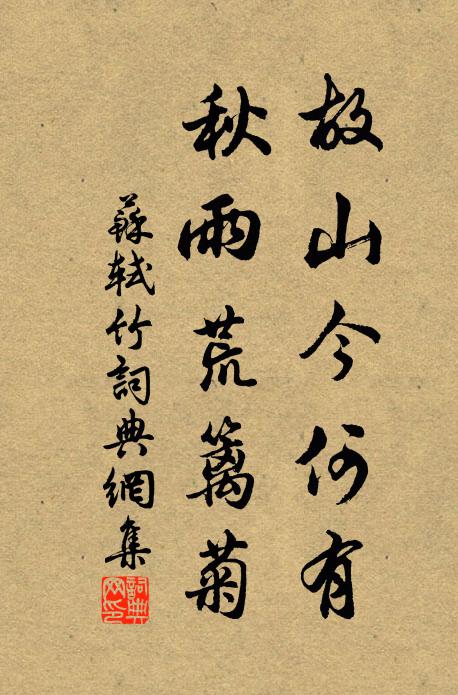 故山今何有
秋雨荒篱菊
蘇軾竹詞典網集
詞典網印